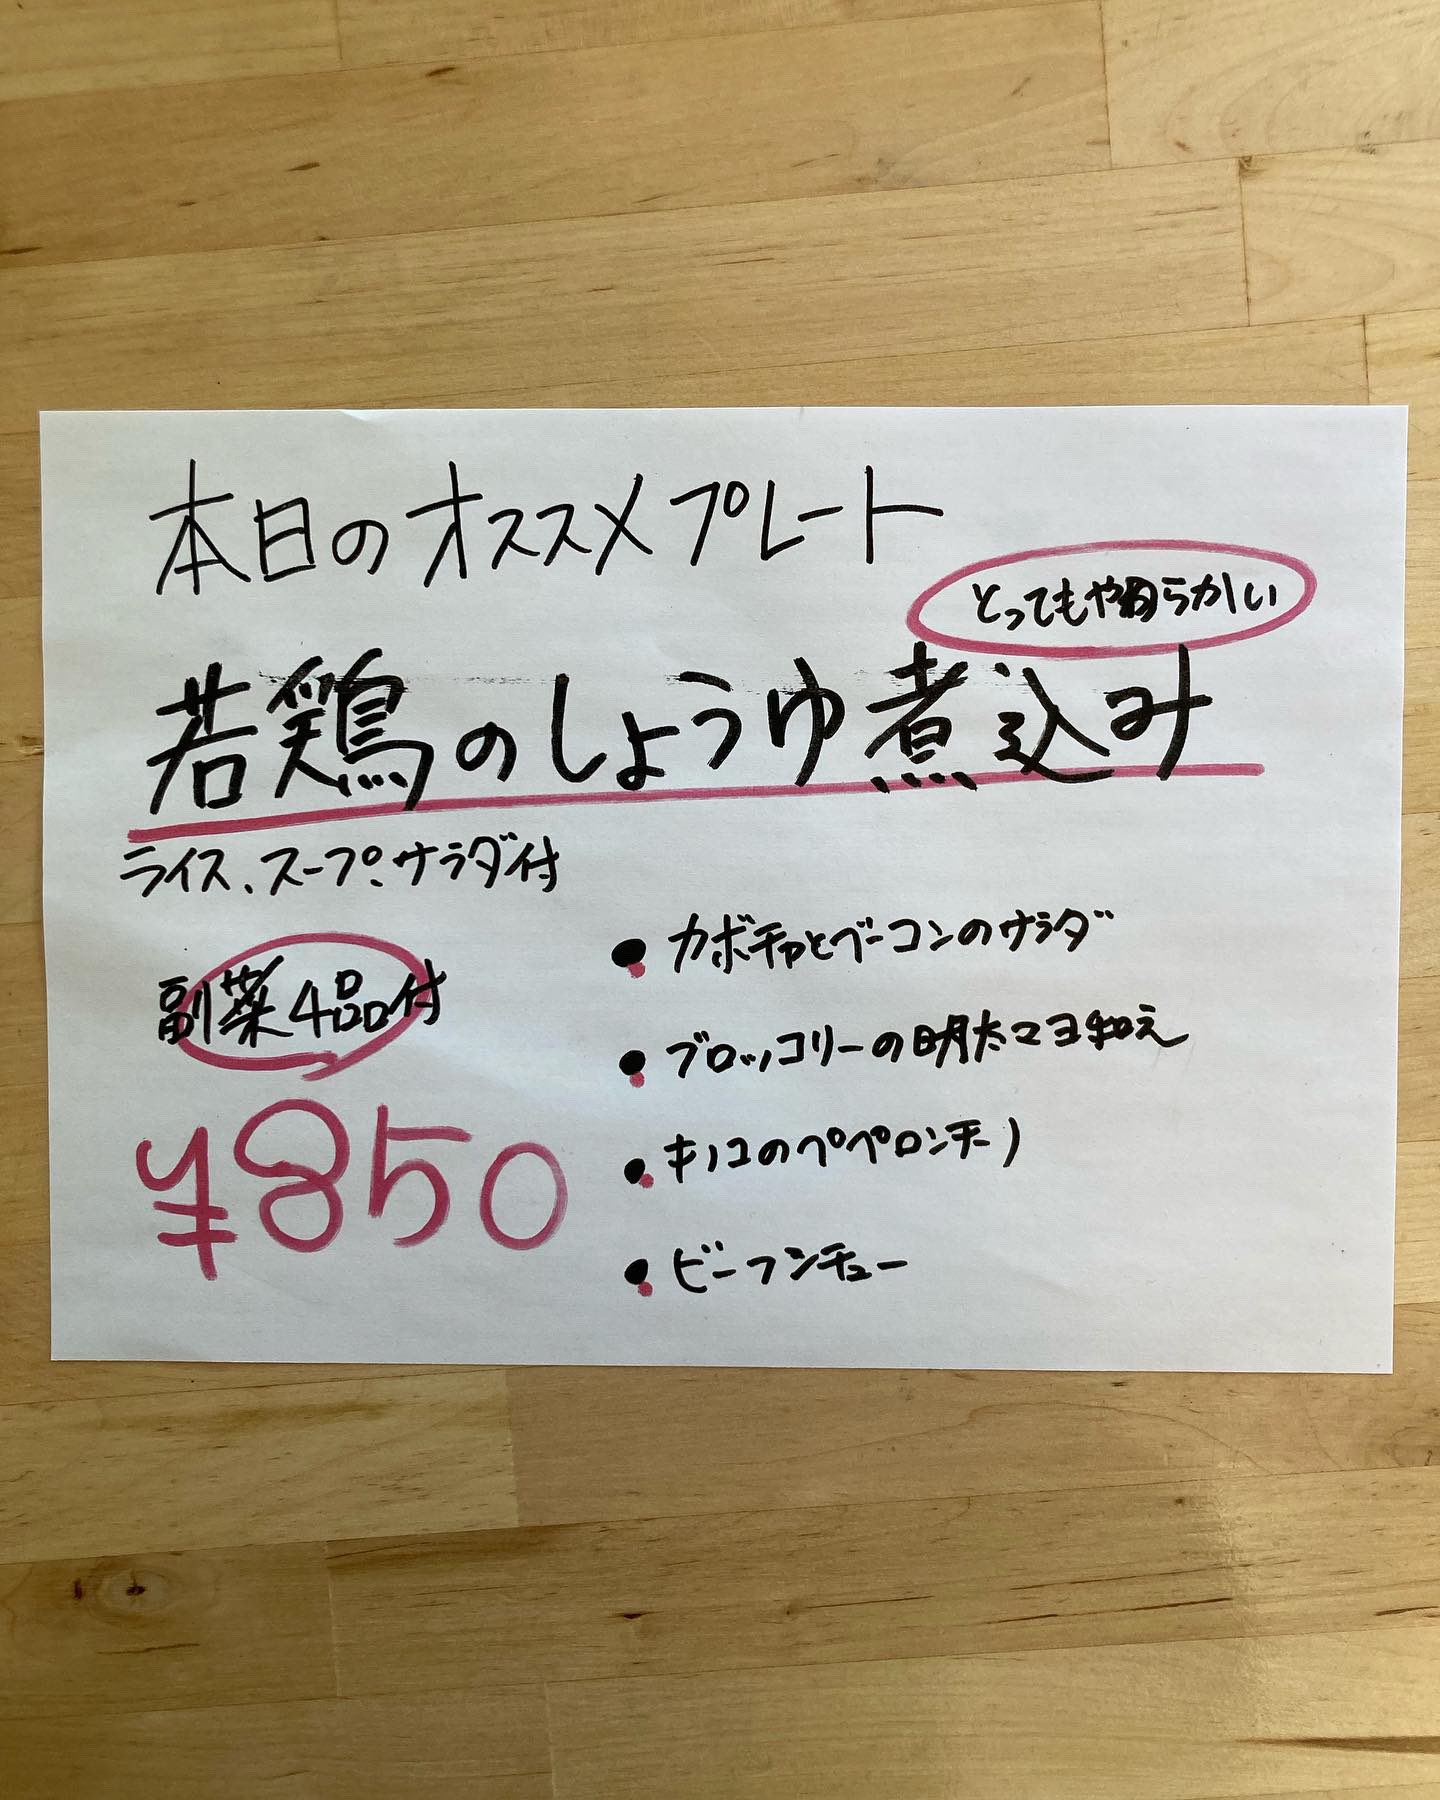 本日のオススメプレート
とってもや柔らかい
若鶏のしょうゆ煮込み
ライス、スープ、サラダ付
副菜4品付
¥850
● カボチャとベーコンのサラダ
● ブロッコリーの明太マヨ和え
● キノコのペペロンチーノ
● ビーフシチュー